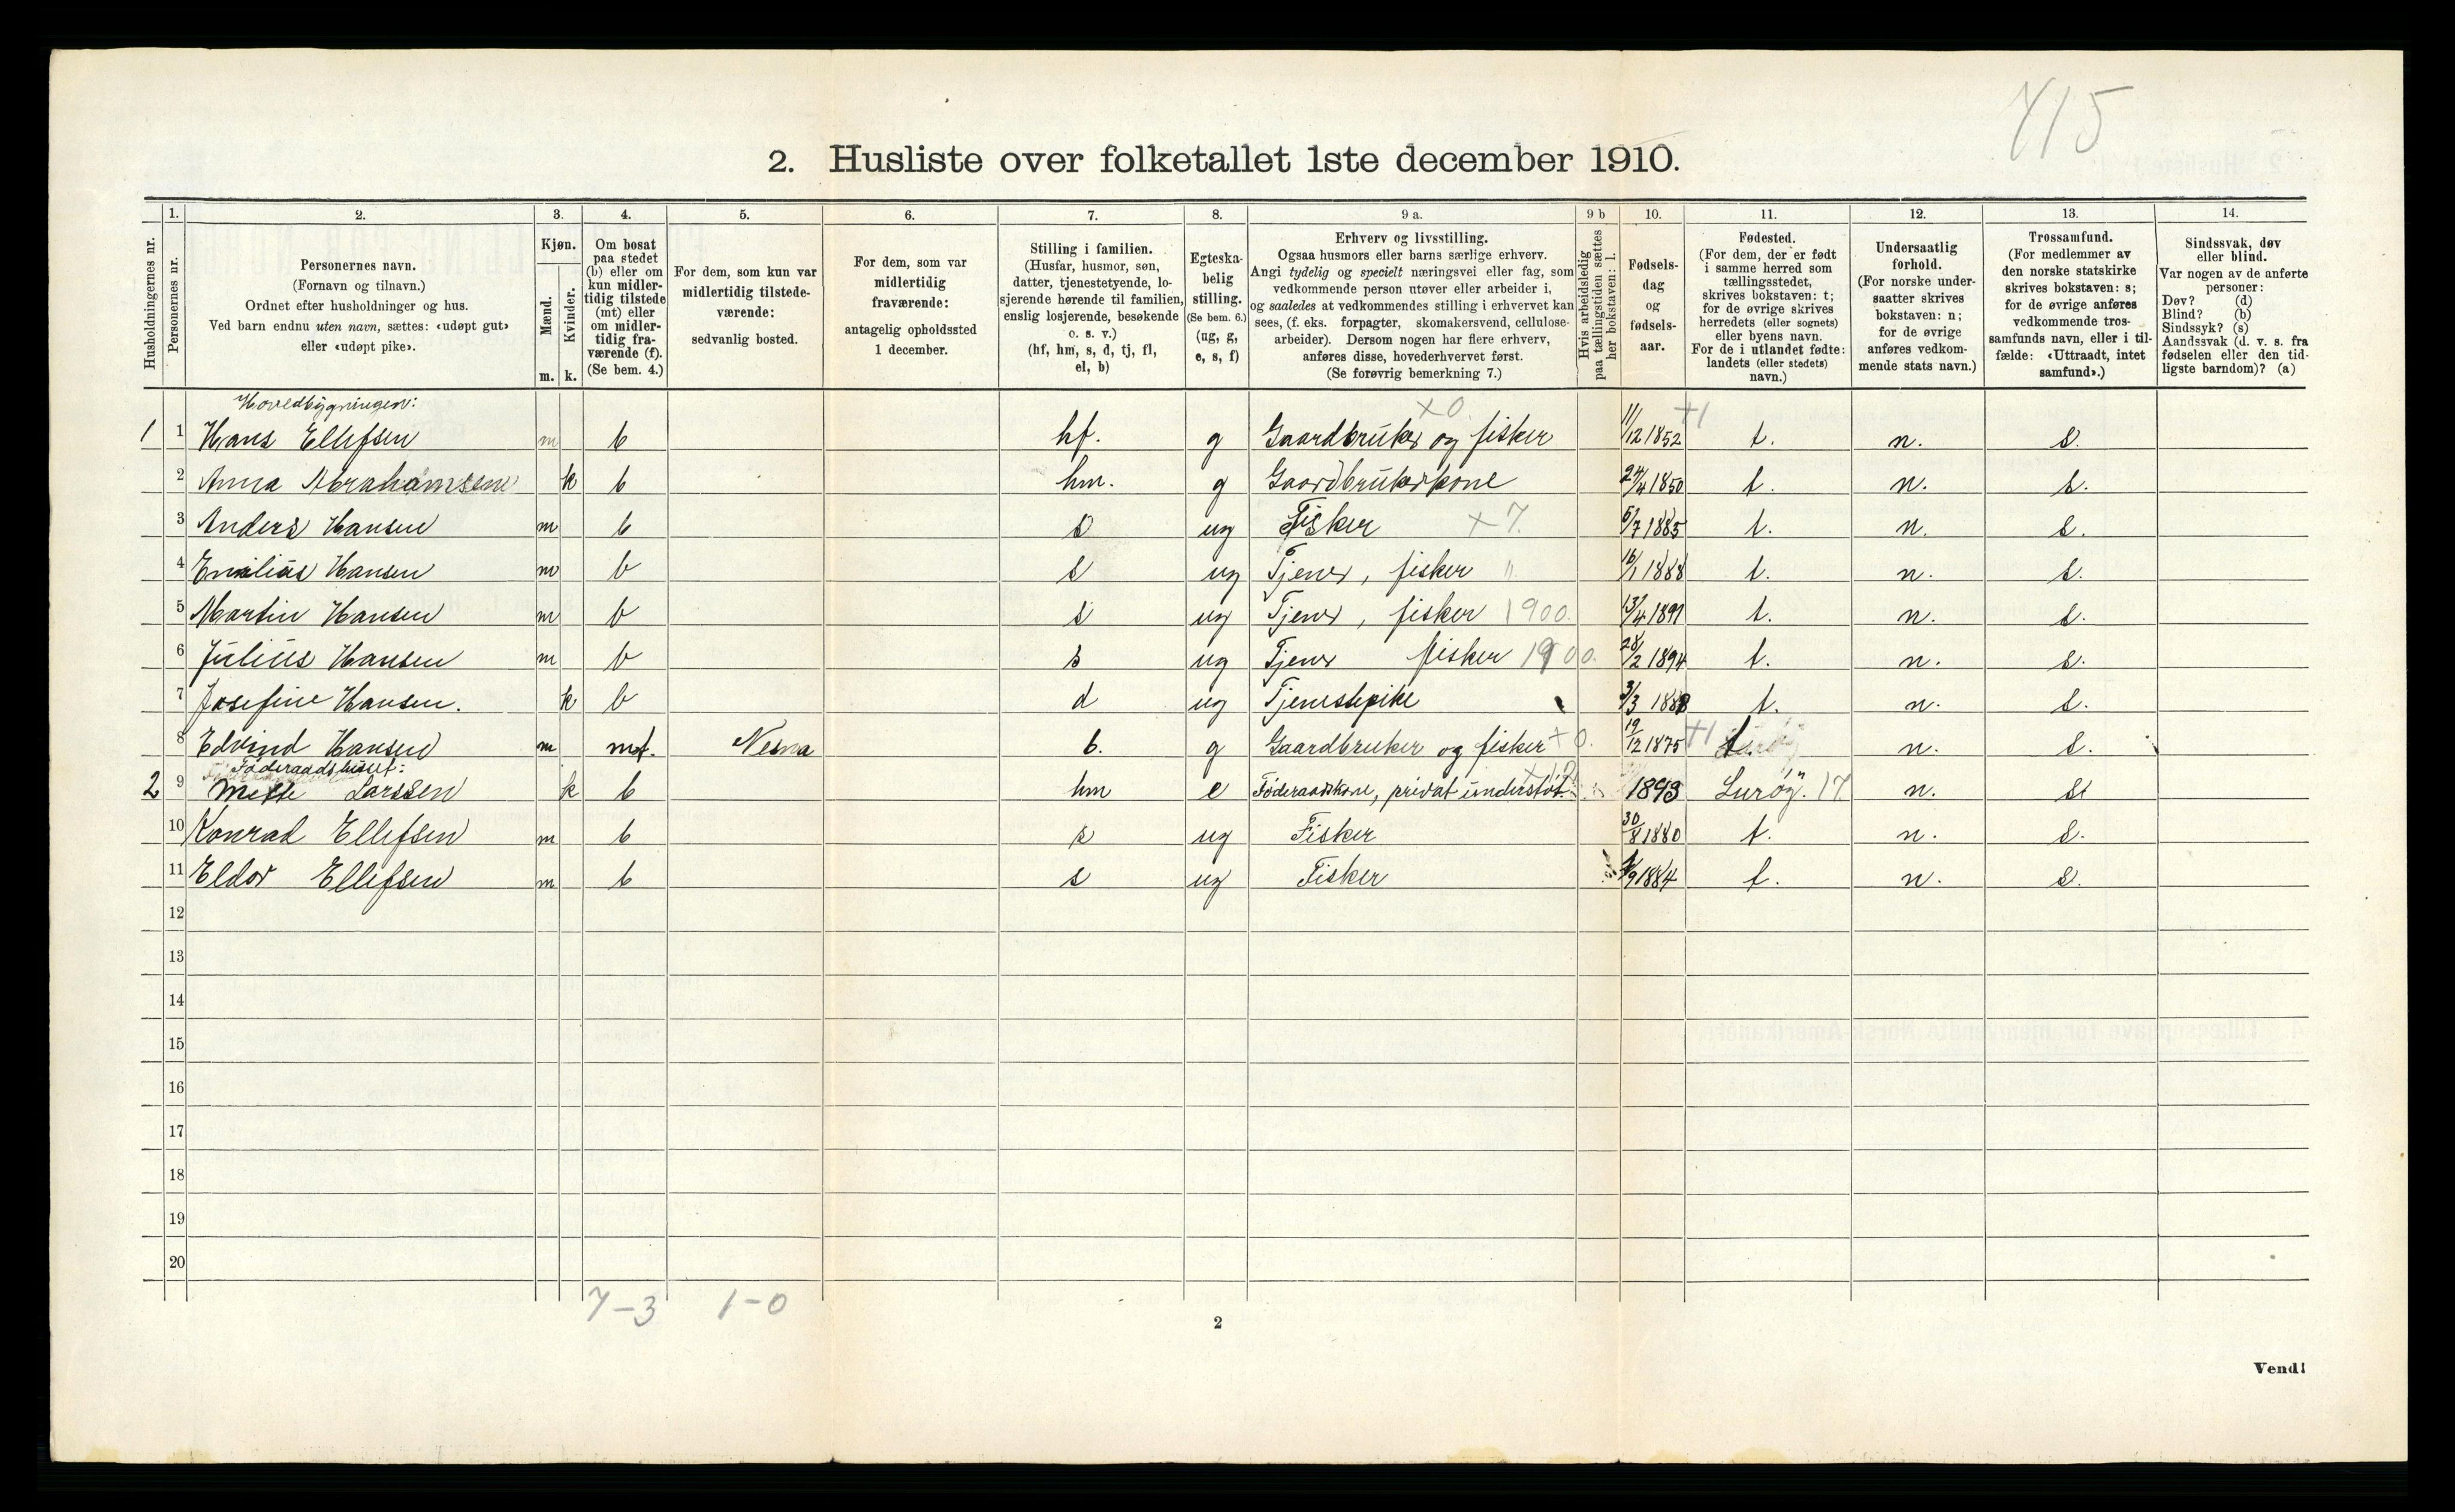 715
2. Husliste over folketallet 1ste december 1910.
Husholdningernes nr.
1. Personernes nr.
2. Personernes navn. (Fornavn og tilnavn.) Ordnet efter husholdninger og hus. Ved barn endnu uten navn, sættes: «udøpt gut» eller «udøpt pike».
3. Kjøn. Mænd. m. Kvinder. k.
4. Om bosat paa stedet (b) eller om kun midlertidig tilstede (mt) eller om midlertidig fraværende (f). (Se bem. 4.)
5. For dem, som kun var midlertidig tilstedeværende: sedvanlig bosted.
6. For dem, som var midlertidig fraværende: antagelig opholdssted 1 december.
7. Stilling i familien. (Husfar, husmor, søn, datter, tjenestetyende, losjerende hørende til familien, enslig losjerende, besøkende o. s. v.) (hf, hm, s, d, tj, fl, el, b)
8. Egteskabelig stilling. (Se bem. 6.) (ug, g, e, s, f)
9 a. Erhverv og livsstilling. Ogsaa husmors eller barns særlige erhverv. Angi tydelig og specielt næringsvei eller fag, som vedkommende person utøver eller arbeider i, og saaledes at vedkommendes stilling i erhvervet kan sees, (f. eks. forpagter, skomakersvend, cellulosearbeider). Dersom nogen har flere erhverv, anføres disse, hovederhvervet først. (Se forøvrig bemerkning 7.)
9 b Hvis arbeidsledig paa tællingstiden sættes her bokstaven: l.
10. Fødselsdag og fødselsaar.
11. Fødested. (For dem, der er født i samme herred som tællingsstedet, skrives bokstaven: t; for de øvrige skrives herredets (eller sognets) eller byens navn. For de i utlandet fødte: landets (eller stedets) navn.)
12. Undersaatlig forhold. (For norske undersaatter skrives bokstaven: n; for de øvrige anføres vedkommende stats navn.)
13. Trossamfund. (For medlemmer av den norske statskirke skrives bokstaven: s; for de øvrige anføres vedkommende trossamfunds navn, eller i tilfælde: «Uttraadt, intet samfund».)
14. Sindssvak, døv eller blind. Var nogen av de anførte personer: Døv? (d) Blind? (b) Sindssyk? (s) Aandssvak (d. v. s. fra fødselen eller den tidligste barndom)? (a)
Hovedbygningen:
1 1 Hans Ellefsen m b hf. g Gaardbruker og fisker x0. 11/12 1852 +1 t. n. s.
2 Anna Abrahamsen k b hm. g Gaardbrukerkone 24/4 1850 t. n. s.
3 Anders Hansen m b s ug Fisker x7. 5/7 1885 t. n. s.
4 Emilius Hansen m b s ug Tjener, fisker " 16/1 1888 t. n. s.
5 Martin Hansen m b s ug Tjener, fisker 1900. 13/4 1891 t. n. s.
6 Julius Hansen m b s ug Tjener fisker 1900. 28/2 1894 t. n. s.
7 Josefine Hansen. k b d ug Tjenestepike 3/3 1888 t. n. s.
8 Edvind Hansen m mt. Nesna b. g Gaardbruker og fisker x0. 19/12 1875 +1 t. n. s.
Föderaadshuset:
2 9 Mette Larssen k b hm e Föderaadskone, privat understöt. 1893 Luröy. 17 n. s
10 Konrad Ellefsen m b s ug Fisker 30/8 1880 t. n. s.
11 Eldor Ellefsen m b s ug Fisker /9 1884 t. n. s.
12
13
14
15
16
17
18
19
20
7-3 1-0
2
Vend!